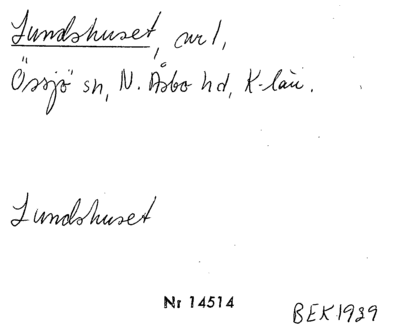 Lundshuset, avs,
Össjö sn, N. Åsbo hd, K-län.
Lundshuset
Nr 14514
BEK 1939